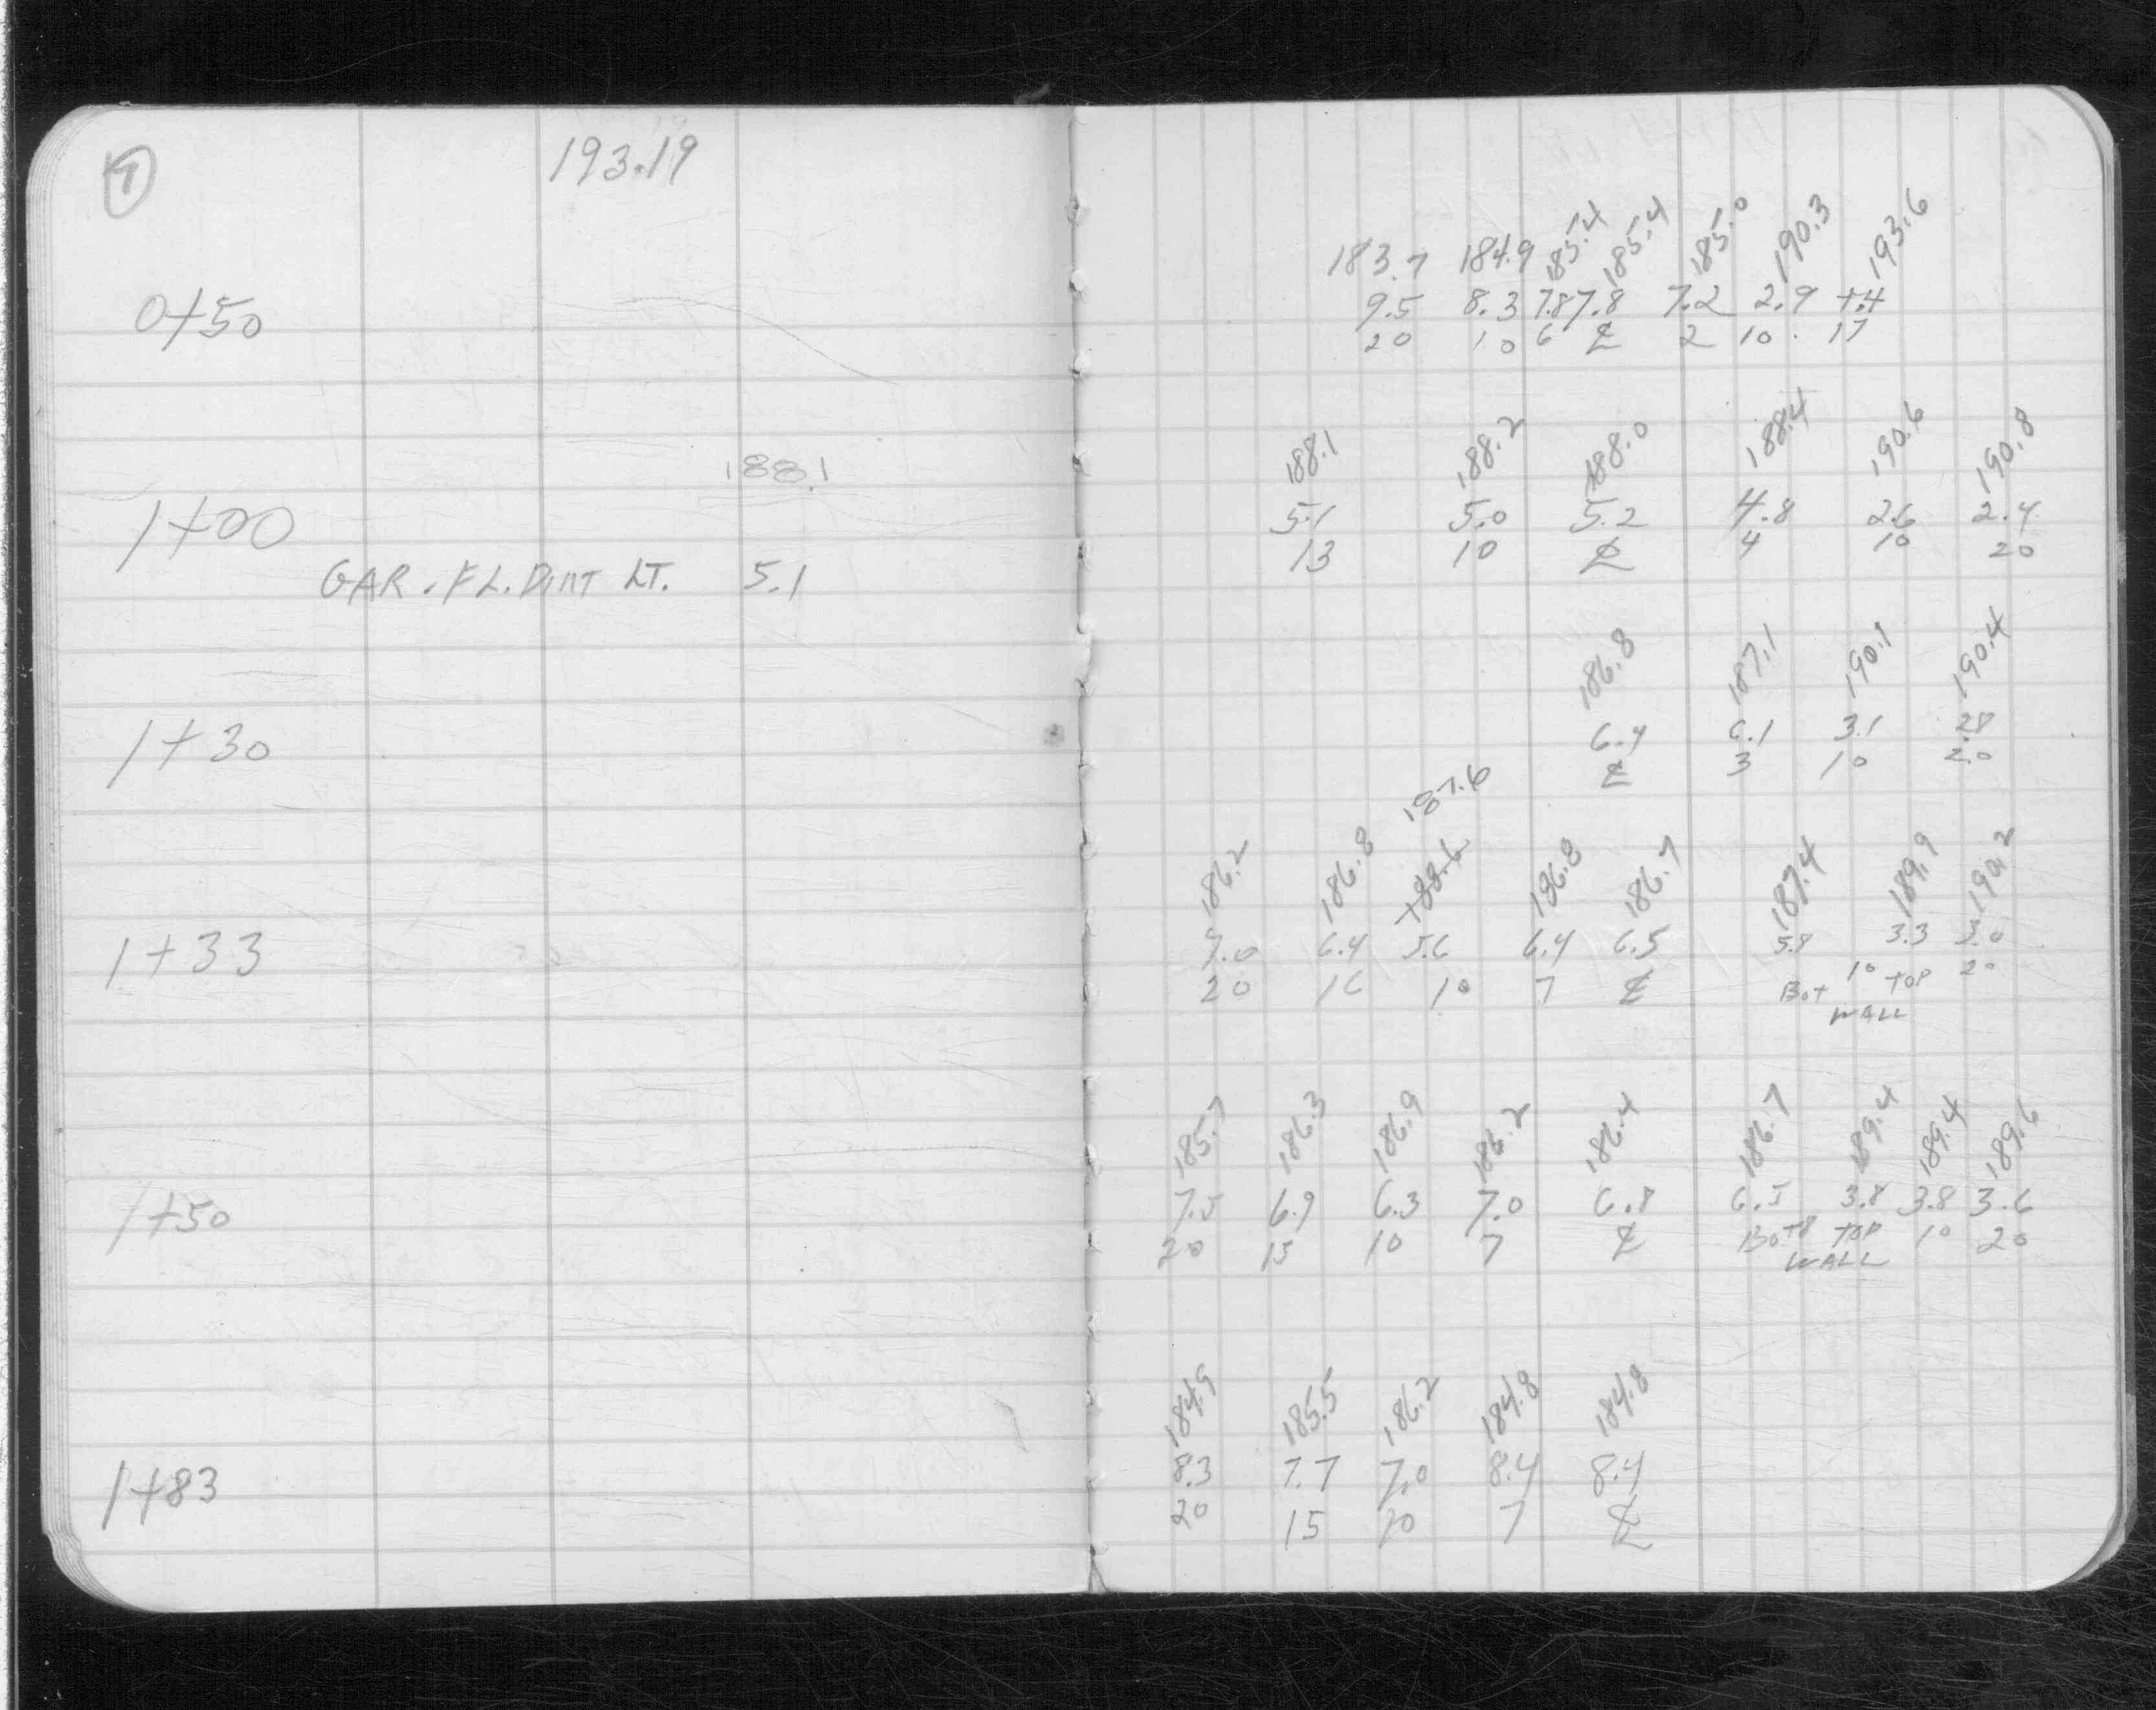 7
193.19
183.7 184.9 185.4 185.4 185.0 190.3 193.6
0+50 9.5 8.3 7.8 7.8 7.2 2.9 +.4
20 10 6 ℄ 2 10 17
188.1 188.1 188.2 188.0 188.4 190.6 190.8
1+00 5.1 5.0 5.2 4.8 2.6 2.4
13 10 ℄ 4 10 20
GAR. FL. DIRT LT. 5.1
186.8 187.1 190.1 190.4
1+30 6.4 6.1 3.1 2.8
℄ 3 10 20
187.6
186.2 186.8 188.6 186.8 186.7 187.4 189.9 190.2
1+33 7.0 6.4 5.6 6.4 6.5 5.8 3.3 3.0
20 16 10 7 ℄ BOT 10 TOP 20
WALL
185.7 186.3 186.9 186.2 186.4 186.7 189.4 189.4 189.6
1+50 7.5 6.9 6.3 7.0 6.8 6.5 3.8 3.8 3.6
20 15 10 7 ℄ BOT 8 TOP 10 20
WALL
184.9 185.5 186.2 184.8 184.8
1+83 8.3 7.7 7.0 8.4 8.4
20 15 10 7 ℄